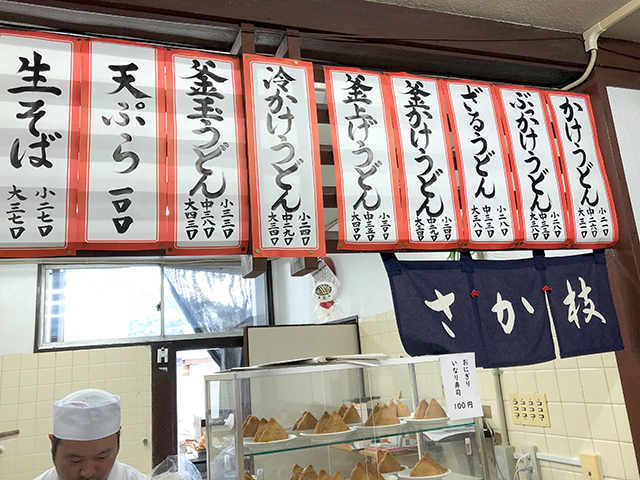 かけうどん
小二一〇
中二六〇
大三一〇
ぶっかけうどん
小二六〇
中三一〇
大三六〇
ざるうどん
小二八〇
中三三〇
大三八〇
釜かけうどん
小二四〇
中二九〇
大三四〇
釜上げうどん
小三〇〇
中三五〇
大四〇〇
冷かけうどん
小二四〇
中二九〇
大三四〇
釜玉うどん
小三三〇
中三八〇
大四三〇
天ぷら
一〇〇
生そば
小二七〇
大三七〇
さか枝
おにぎり
いなり寿司
100円